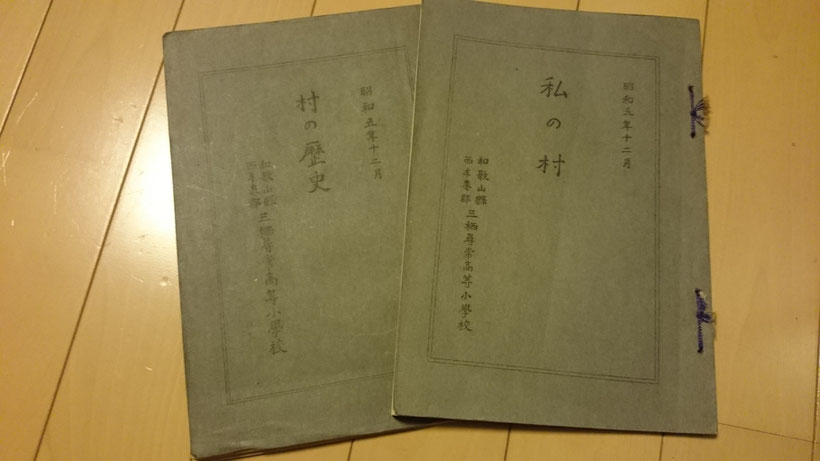 昭和五年十二月
私の村
和歌山縣
西牟婁郡
三栖尋常高等小學校
昭和五年十二月
村の歷史
和歌山縣
西牟婁郡
三栖尋常高等小學校